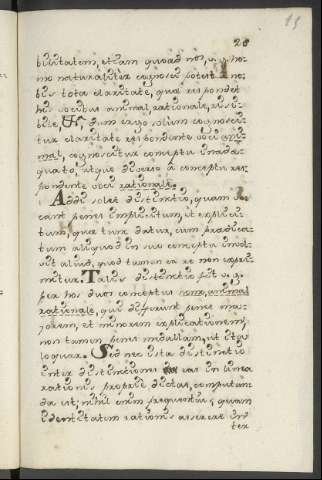 28
15
bilitatem, etiam quoad nos, v.g. ho-
mo naturaliter cognosci potest a no-
bis tota claritate, quæ respondet
his vocibus animal, rationale, risi-
bile, dum ergo solum cognosci-
tur claritate respondente voci ani-
mal, cognoscitur conceptu inadæ-
quato, atque diverso a conceptu res-
pondente voci rationale.
Addi solet distinctio, quam vo-
cant penes implicitum, et explici-
tum, quæ tunc datur, cum prædica-
tum aliquod in suo conceptu invol-
vit aliud, quod tamen ex se non expri-
mitur. Talis distinctio fit v.g.
per hos duos conceptus homo, animal
rationale, qui differunt penes ma-
jorem, et minorem explicationem,
non tamen penes medullam, ut ita
loquar. Sed nec ista distinctio
inter distinctiones eas in linea
rationis proprie dictas, computan-
da est; nihil enim frequentius, quam
identitatem rationis asserere in-
ter